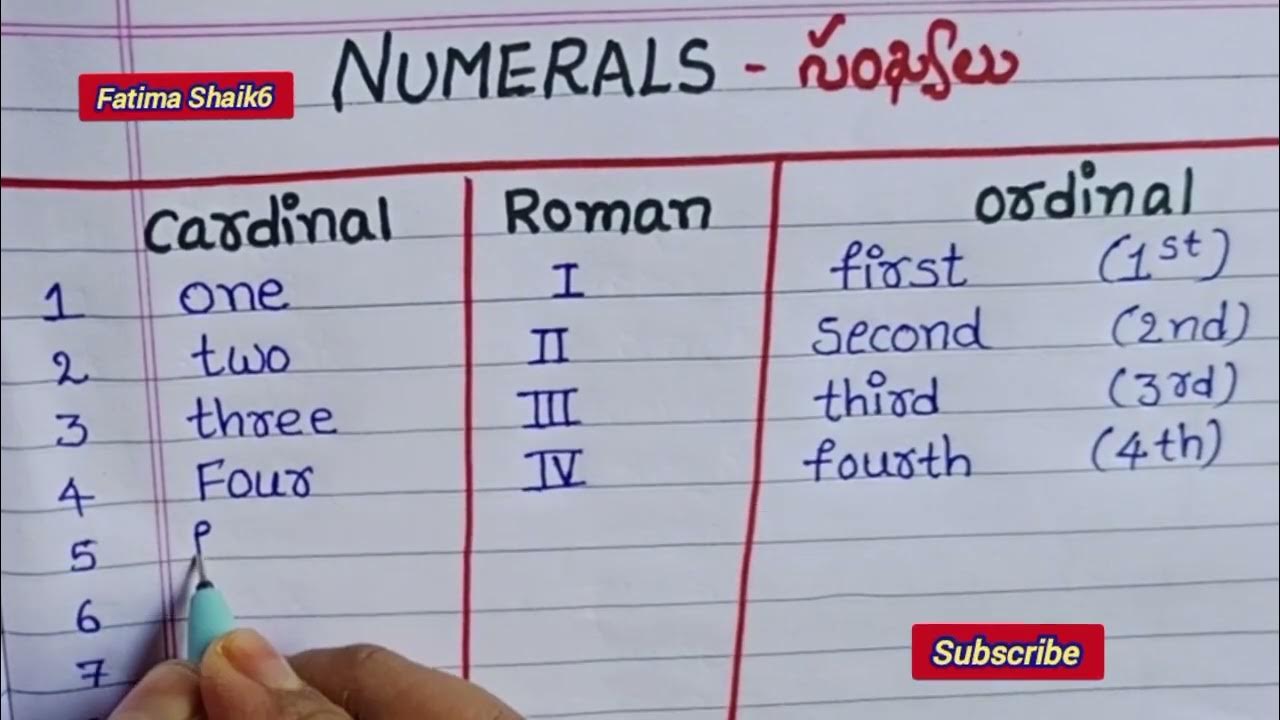 NUMERALS - సంఖ్యలు
Fatima Shaik6
Cardinal Roman ordinal
1 one I first (1st)
2 two II second (2nd)
3 three III third (3rd)
4 Four IV fourth (4th)
5
6
7
Subscribe